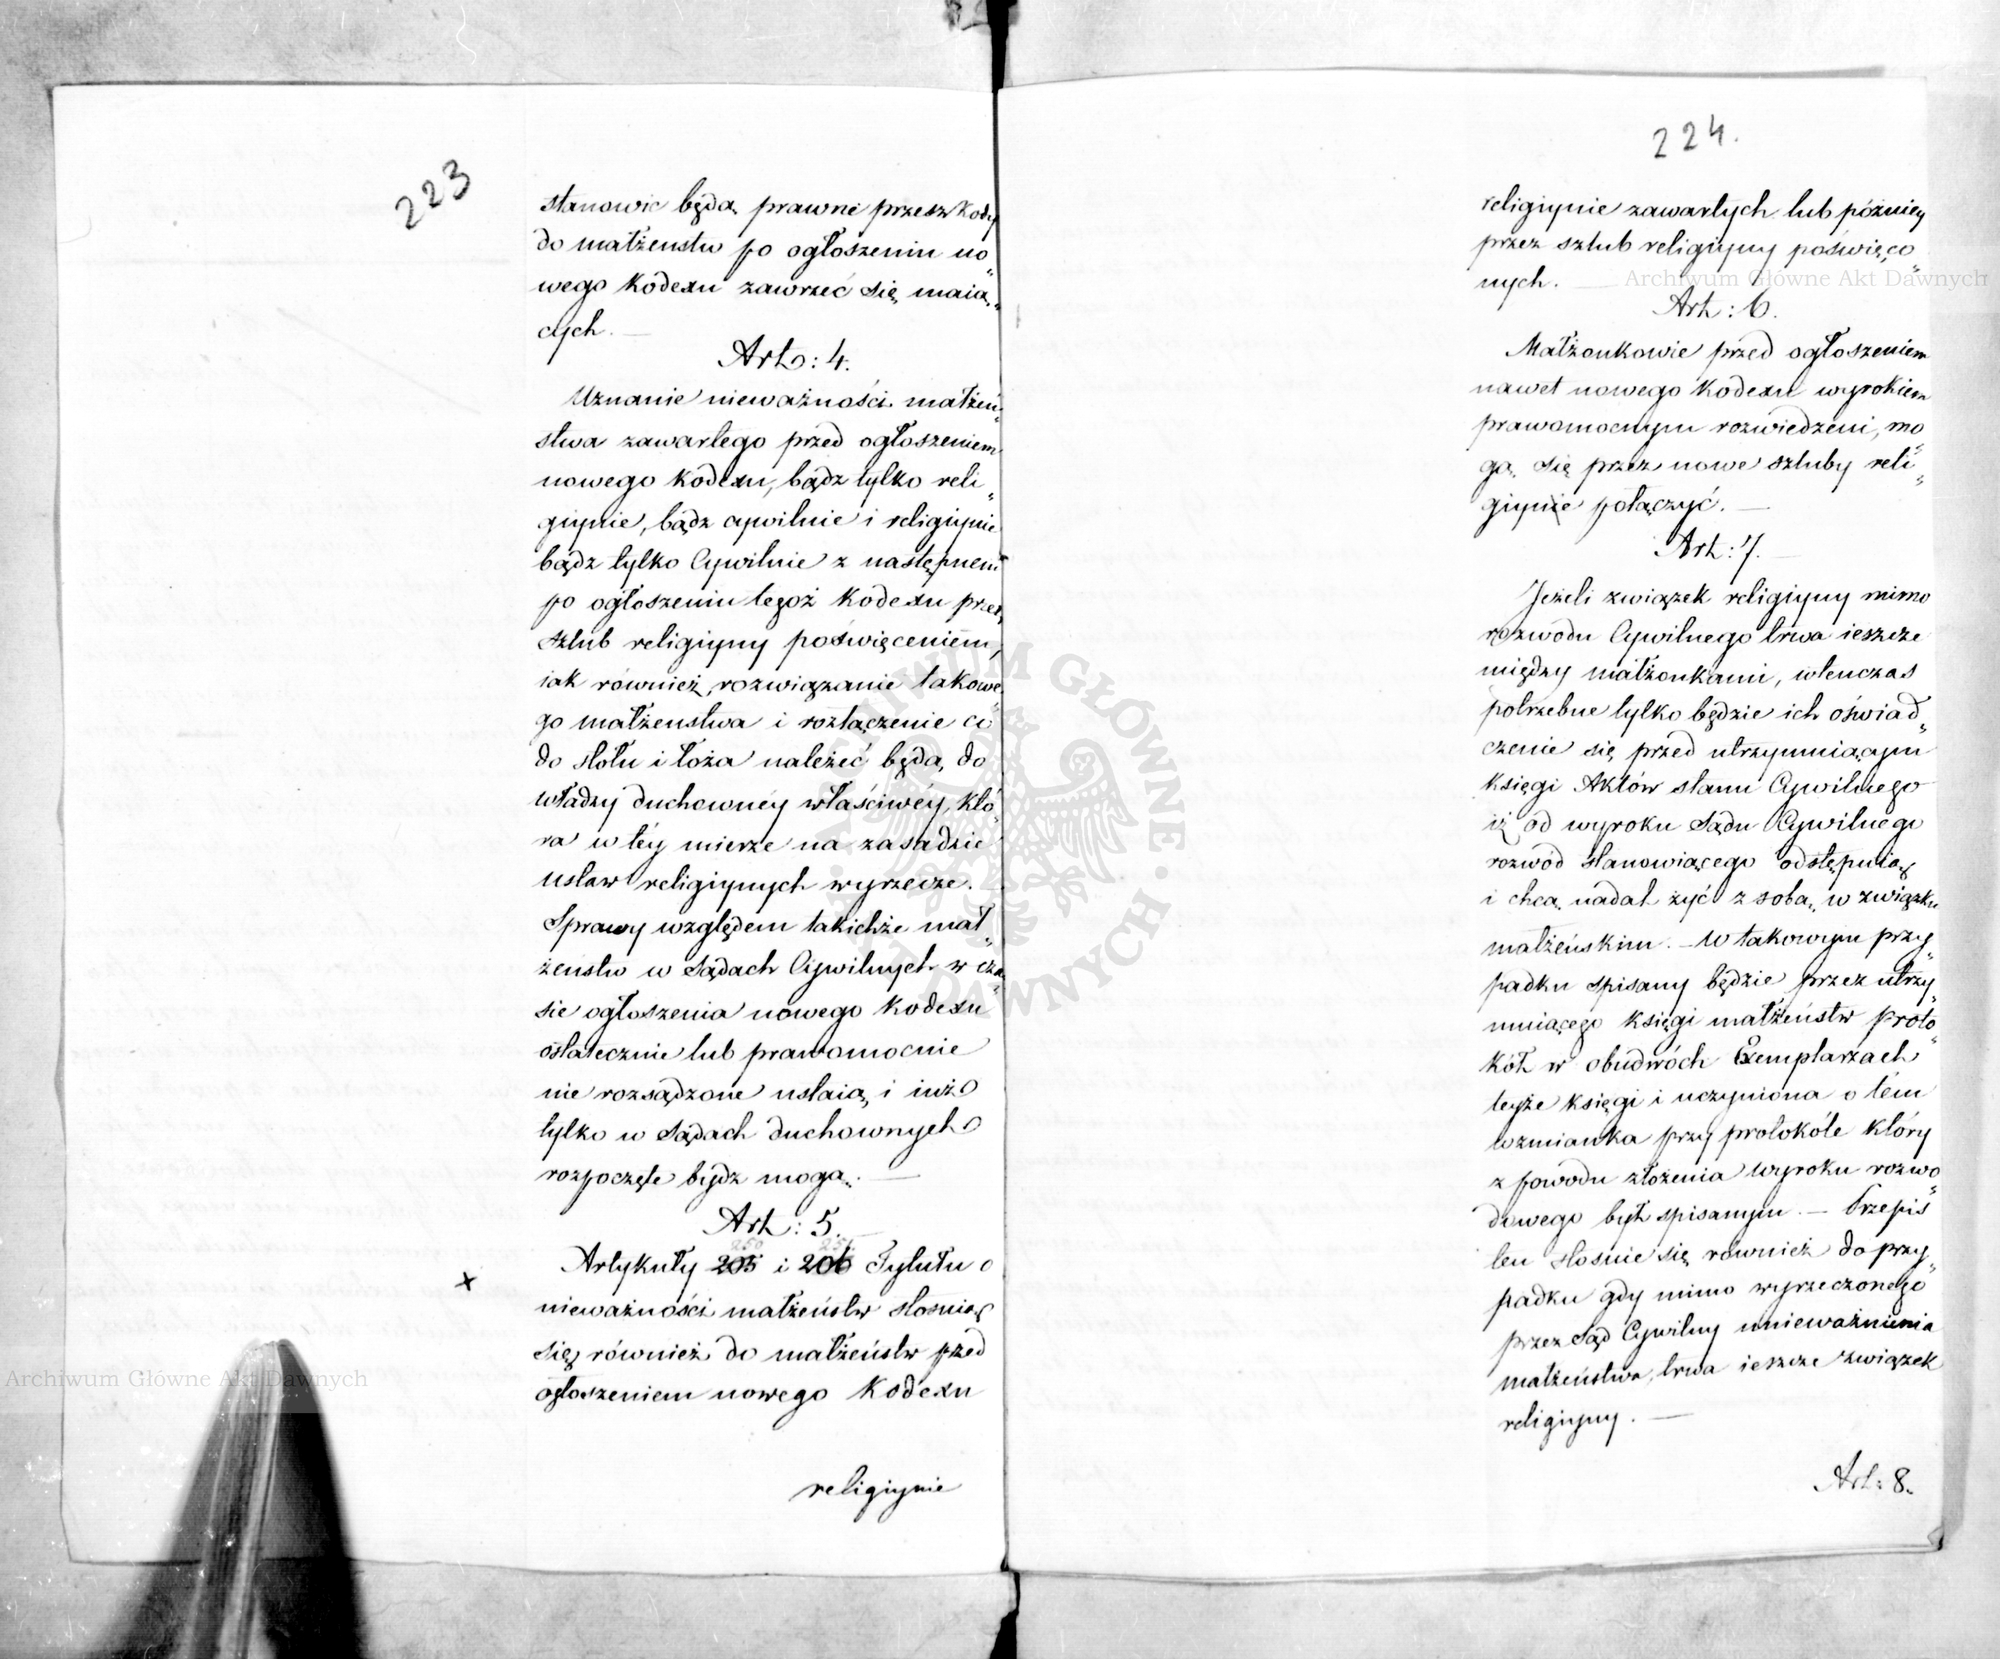 223
stanowić będą prawne przeszkody
do małżeństw po ogłoszeniu no„
wego Kodexu zawrzeć się maią„
cych. —
Art: 4.
Uznanie nieważności małżeń„
stwa zawartego przed ogłoszeniem
nowego Kodexu, bądz tylko reli„
giynie, bądz cywilnie i religiynie
bądz tylko Cywilnie z następnem
po ogłoszeniu tegoż Kodexu przez
szlub religiyny poświęceniem,
iak również rozwiązanie takowe„
go małżenstwa i rozłączenie co
do stołu i łoża należeć będą do
władzy duchownéy właściwéy, któ„
ra w téy mierze na zasadzie
Ustaw religiynych wyrzecze.
Sprawy względem takichże mał„
żeństw w Sądach Cywilnych w cza„
sie ogłoszenia nowego Kodexu
ostatecznie lub prawomocnie
nie rozsądzone ustaią i iuż
tylko w Sądach duchownych
rozpoczęte bydz mogą. —
Art: 5.
250 251
Artykuły 205 i 206 Tytułu o
x
nieważności małżeństw stosuią
się również do małżeństw przed
ogłoszeniem nowego Kodexu
religiynie
224.
religiynie zawartych lub póżniey
przez szlub religiyny poświęco„
nych. —
Art: 6.
Małżonkowie przed ogłoszeniem
nawet nowego Kodexu wyrokiem
prawomocnym rozwiedzeni, mo„
gą się przez nowe szluby reli„
giynie połączyć. —
Art: 7. —
Jeżeli związek religiyny mimo
rozwodu Cywilnego trwa ieszcze
między małżonkami, wtenczas
potrzebne tylko będzie ich oświad„
czenie się przed utrzymuiącym
księgi Aktów stanu Cywilnego
iż od wyroku Sądu Cywilnego
rozwód stanowiącego odstępuią
i chcą nadal żyć z sobą w związku
małżeńskim. — W takowym przy„
padku spisany będzie przez utrzy„
muiącego księgi małżeństw proto„
kół w obudwóch Exemplarzach
teyże księgi i uczyniona o tém
wzmianka przy protokóle który
z powodu złożenia wyroku rozwo„
dowego był spisanym. — Przepis
ten stosuie się również do przy„
padku gdy mimo wyrzeczonego
przez Sąd Cywilny unieważnienia
małżeństwa, trwa ieszcze związek
religiyny. —
Art: 8.
Archiwum Główne Akt Dawnych
Archiwum Główne Akt Dawnych
ARCHIWUM GŁÓWNE AKT DAWNYCH